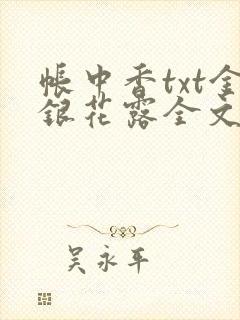 帐中香txt金
银花露全文
吴永平